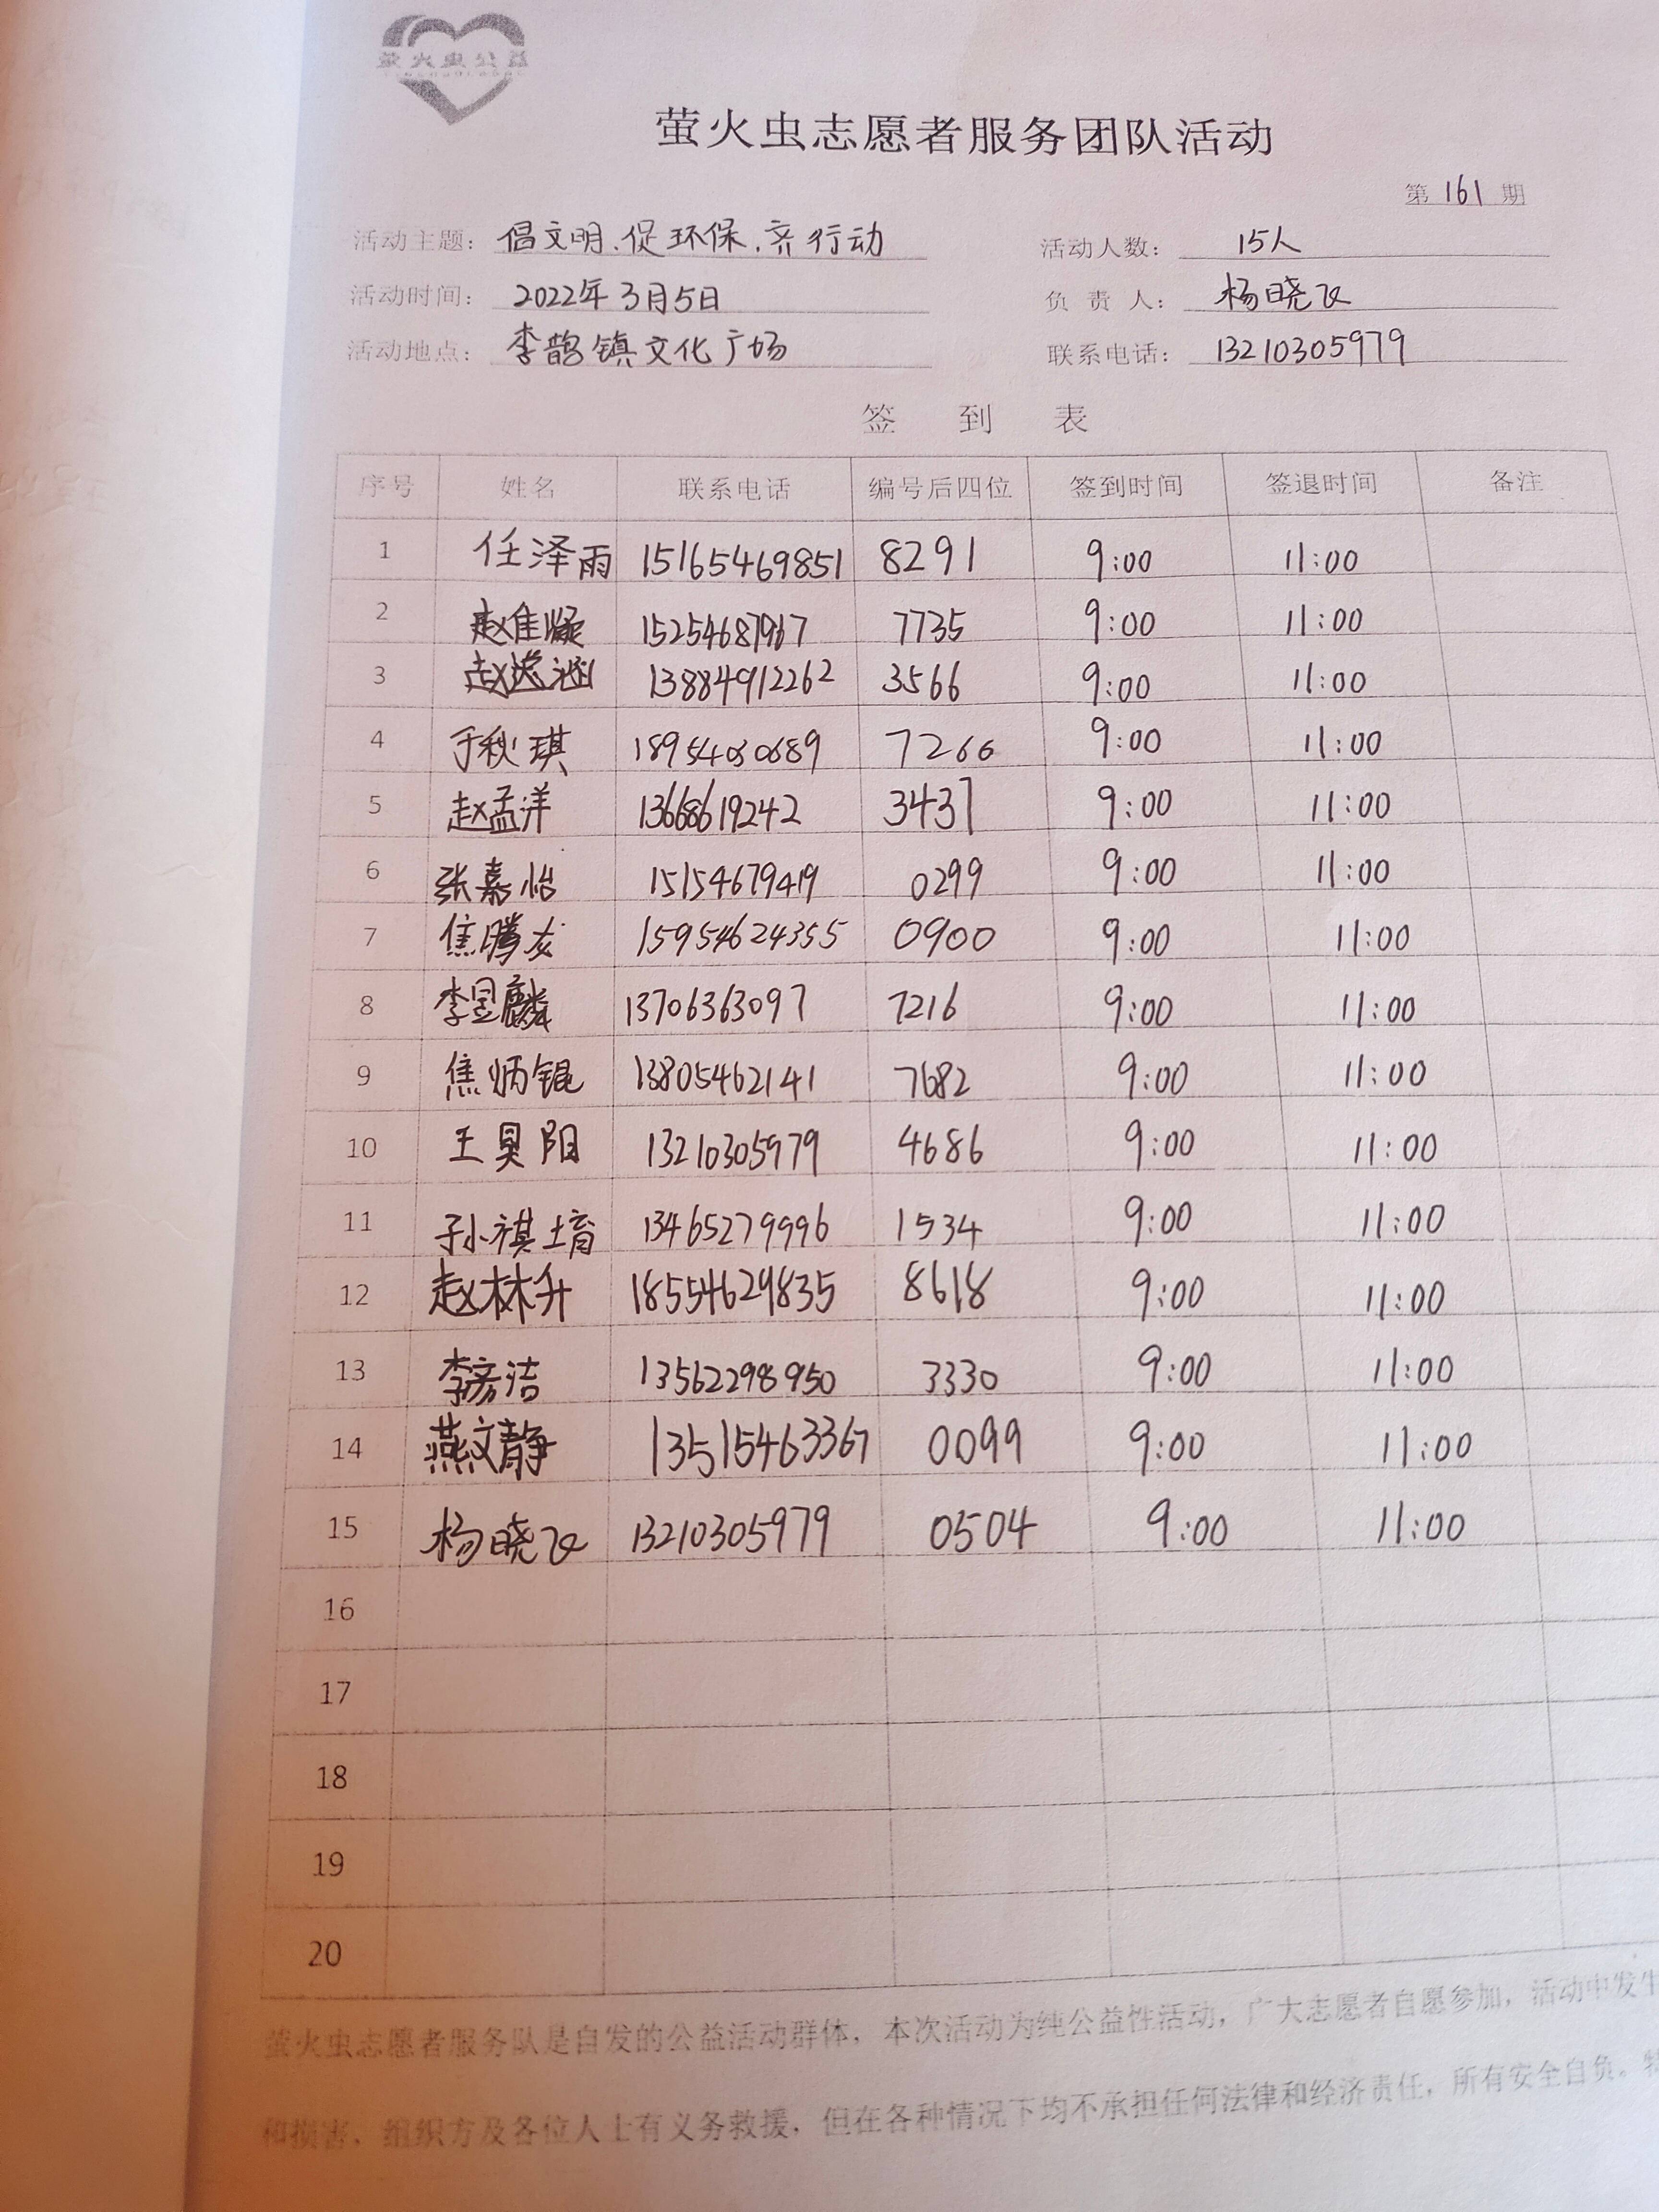 萤火虫公益
萤火虫志愿者服务团队活动
第 161 期
活动主题： 倡文明.促环保.齐行动 活动人数： 15人
活动时间： 2022年3月5日 负 责 人： 杨晓飞
活动地点： 李鹊镇文化广场 联系电话： 13210305979
签 到 表
序号 姓名 联系电话 编号后四位 签到时间 签退时间 备注
1 任泽雨 15165469851 8291 9:00 11:00
2 15254687967 7735 9:00 11:00
3 赵逸涵 13884912262 3566 9:00 11:00
4 于秋琪 7266 9:00 11:00
5 赵孟洋 13668619242 3437 9:00 11:00
6 张嘉怡 15154679419 0299 9:00 11:00
7 焦腾龙 15954624355 0900 9:00 11:00
8 李昱麟 13706363097 7216 9:00 11:00
9 焦炳锟 13805462141 7682 9:00 11:00
10 王昊阳 13210305979 4686 9:00 11:00
11 孙祺堉 13465279996 1534 9:00 11:00
12 赵林升 18554629835 8618 9:00 11:00
13 李彦洁 13562298950 3330 9:00 11:00
14 燕文静 13515463367 0099 9:00 11:00
15 杨晓飞 13210305979 0504 9:00 11:00
16
17
18
19
20
萤火虫志愿者服务队是自发的公益活动群体，本次活动为纯公益性活动，广大志愿者自愿参加，活动中发生
和损害，组织方及各位人士有义务救援，但在各种情况下均不承担任何法律和经济责任，所有安全自负。特